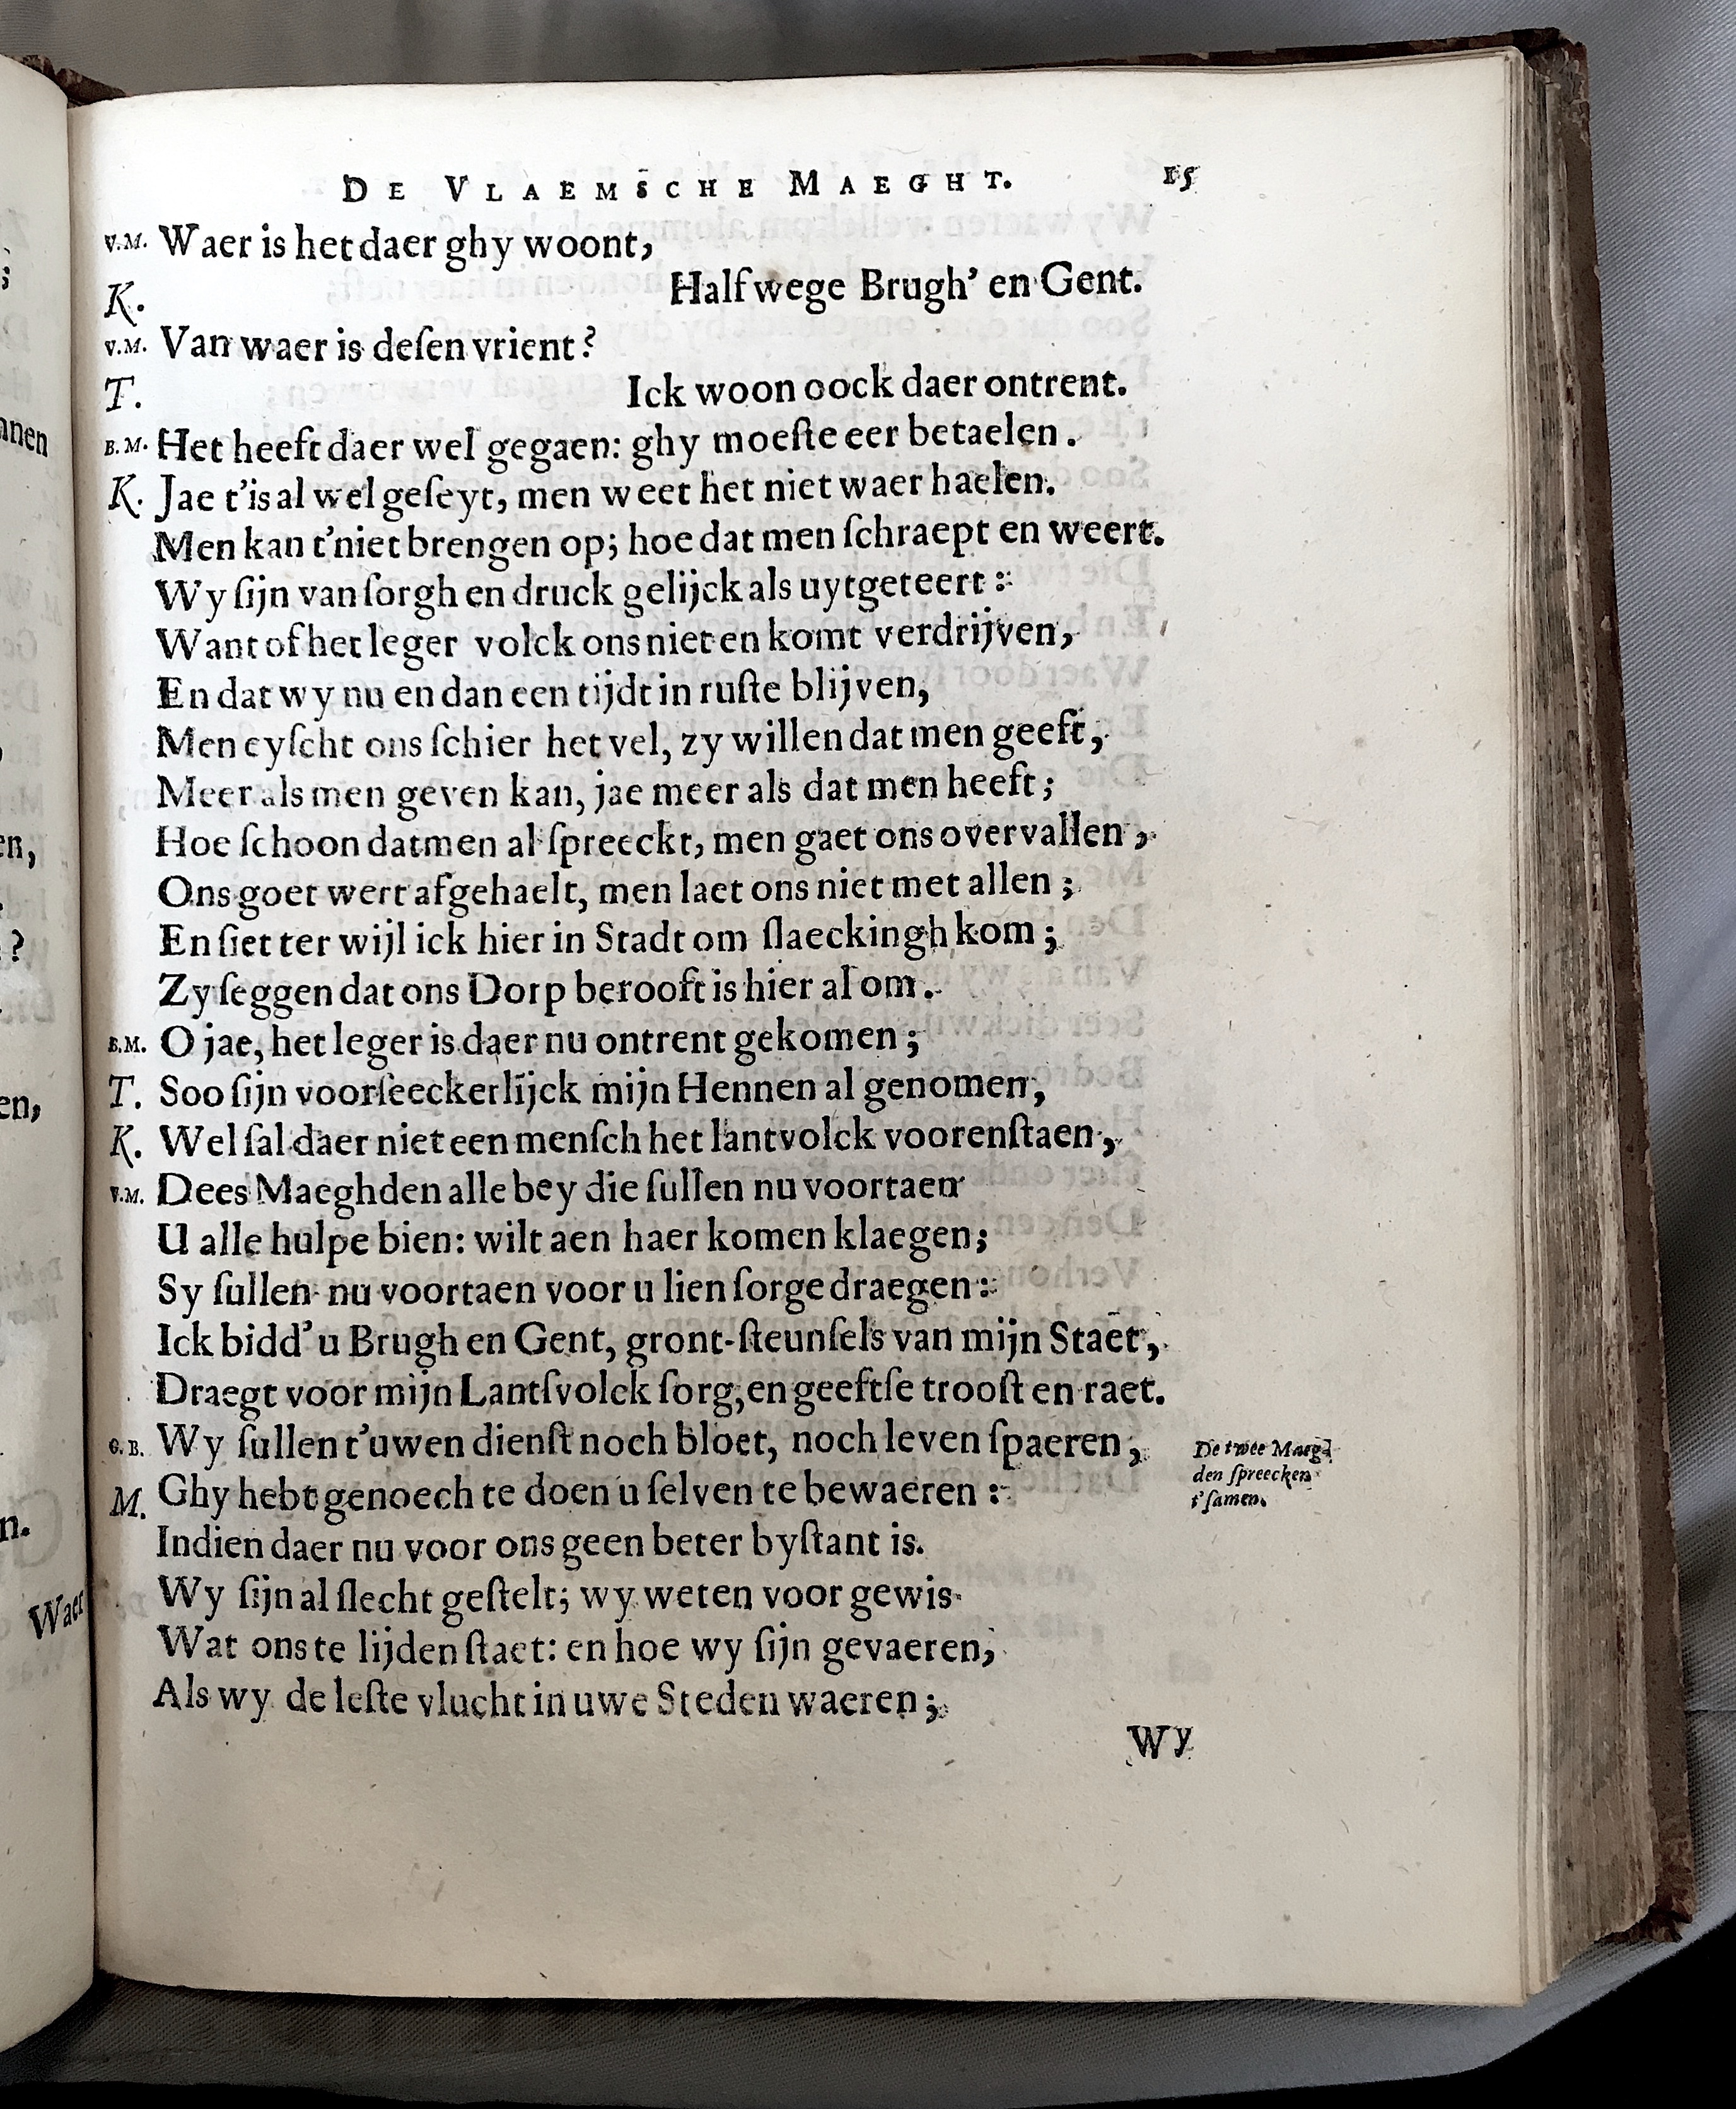 DE VLAEMSCHE MAEGHT. 15
V.M. Waer is het daer ghy woont,
K. Half wege Brugh' en Gent.
V.M. Van waer is deſen vrient?
T. Ick woon oock daer ontrent.
B.M. Het heeft daer wel gegaen: ghy moeſte eer betaelen.
K. Jae t'is al wel geſeyt, men weet het niet waer haelen.
Men kan t'niet brengen op; hoe dat men ſchraept en weert.
Wy ſijn van ſorgh en druck gelijck als uytgeteert:
Want of het leger volck ons niet en komt verdrijven,
En dat wy nu en dan een tijdt in ruſte blijven,
Men eyſcht ons ſchier het vel, zy willen dat men geeft,
Meer als men geven kan, jae meer als dat men heeft;
Hoe ſchoon datmen al ſpreeckt, men gaet ons overvallen,
Ons goet wert afgehaelt, men laet ons niet met allen;
En ſiet ter wijl ick hier in Stadt om ſlaeckingh kom;
Zy ſeggen dat ons Dorp berooft is hier al om.
B.M. O jae, het leger is daer nu ontrent gekomen;
T. Soo ſijn voorſeeckerlijck mijn Hennen al genomen,
K. Wel ſal daer niet een menſch het lantvolck voorenſtaen,
V.M. Dees Maeghden alle bey die ſullen nu voortaen
U alle hulpe bien: wilt aen haer komen klaegen;
Sy ſullen nu voortaen voor u lien ſorge draegen:
Ick bidd' u Brugh en Gent, gront-ſteunſels van mijn Staet,
Draegt voor mijn Lantſvolck ſorg, en geeftſe trooſt en raet.
G.B. Wy ſullen t'uwen dienſt noch bloet, noch leven ſpaeren,
M. Ghy hebt genoech te doen u ſelven te bewaeren:
De twee Maeg-
den ſpreecken
t'ſamen.
Indien daer nu voor ons geen beter byſtant is.
Wy ſijn al ſlecht geſtelt; wy weten voor gewis
Wat ons te lijden ſtaet: en hoe wy ſijn gevaeren,
Als wy de leſte vlucht in uwe Steden waeren;
Wy